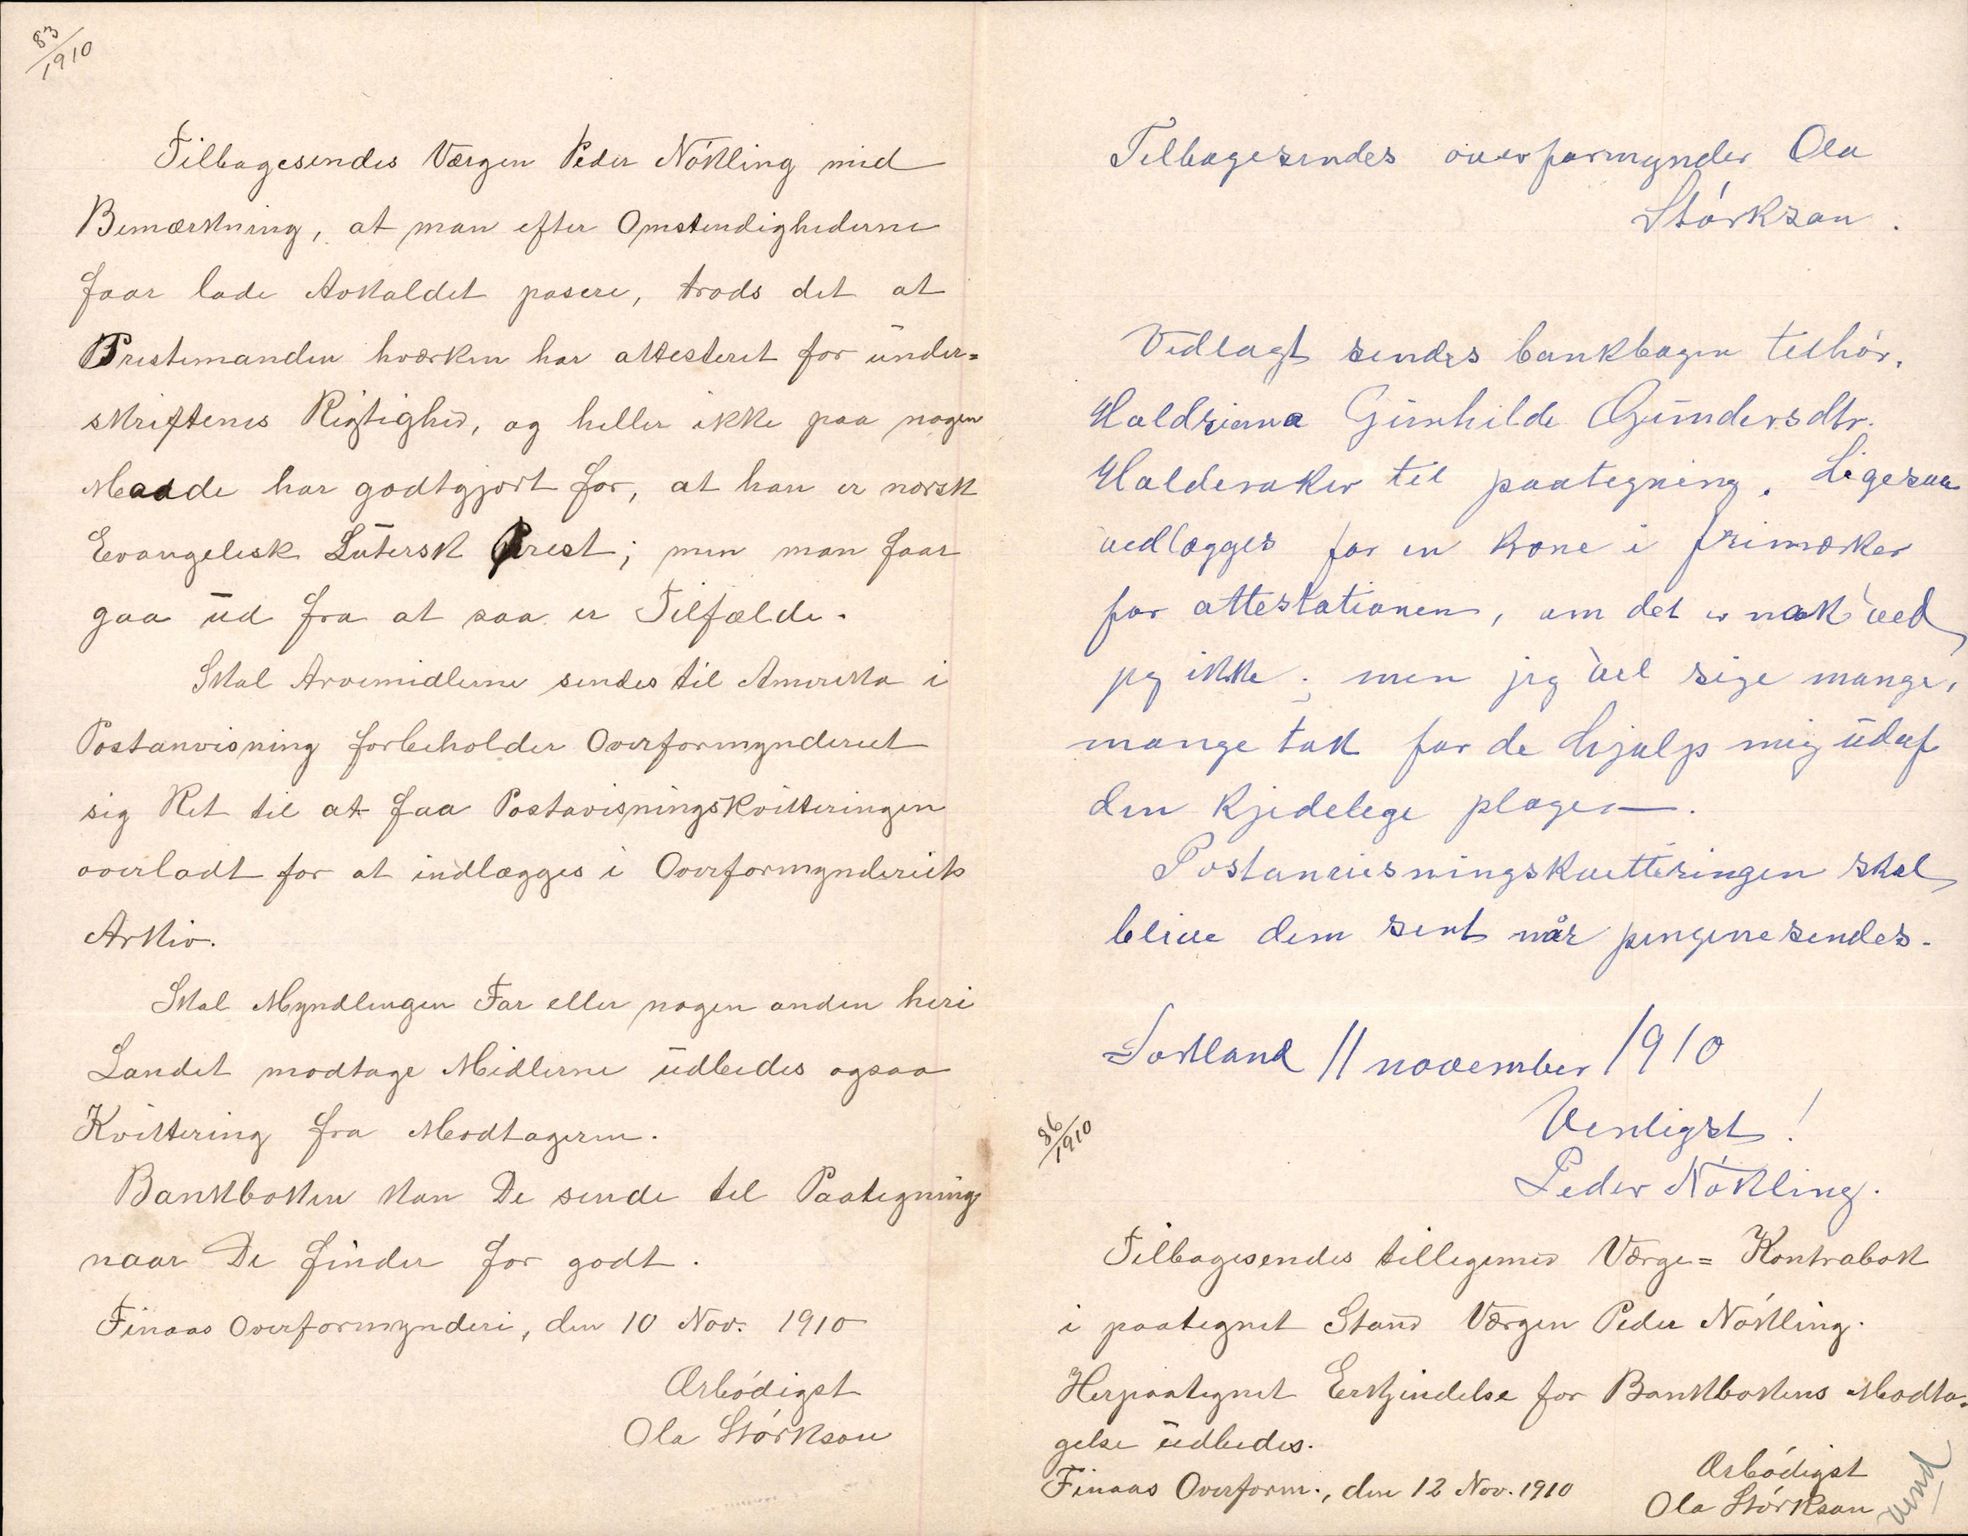 83/1910
Tilbagesendes Værgen Peder Nökling med
Bemærkning, at man efter Omstendighederne
faar lade Avkaldet pasere, trods det at
Prestemanden hværken har attesteret for under=
skriftenes Rigtighed, og heller ikke paa nogen
Maade har godtgjort for, at han er norsk
Evangelisk Lutersk Prest; men man faar
gaa ud fra at saa er Tilfælde.
Skal Arvemidlerne sendes til Amerika i
Postanvisning forbeholder Overformynderiet
sig Ret til at faa Postavisningskvitteringen
overladt for at indlægges i Overformynderiets
Arkiv.
Skal Myndlingen Far eller nogen anden heri
Landet modtage Midlerne udbedes ogsaa
Kvittering fra Modtageren.
Bankboken kan De sende til Paategning
naar De finder for godt.
Finaas Overformynderi, den 10 Nov. 1910
Ærbödigst
Ola Störkson
Tilbagesendes overformynder Ola
Störkson.
Vedlagt sendes bankbogen tilhör.
Haldriana Gunhilde Gundersdtr.
Halderaker til paategning. Ligesaa
vedlægges for en krone i frimærker
for attestationen, om det er nok ved
jeg ikke; men jeg vil sige mange,
mange tak for de hjalp mig udaf
den kjedelege plagen.
Postanvisningskvitteringen skal
blive dem sent når pengene sendes.
Sortland 11 november 1910
Venligst!
Peder Nökling.
86/1910
Tilbagesendes tilligemed Værge= Kontrabok
i paategnet Stand Værgen Peder Nökling.
Herpaategnet Erkjendelse for Bankbokens Modta-
gelse udbedes.
Finaas Overform., den 12 Nov. 1910
Ærbödigst
Ola Störkson
Vend